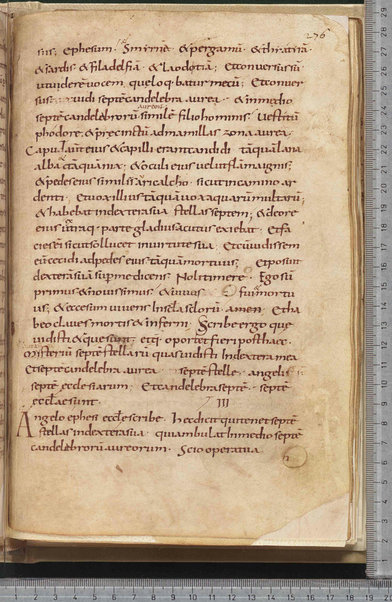 276
sus, ephesum. Smirnę & pergamū & thiatirā
& sardis & filadelfiā & laodotiā; Et conuersus sū
ut uiderē uocem quę loq̄batur mecū; Et conuer
sus uidi septē candelebra aurea. & in medio
septē candelebrorū aureorū similē filio hominis. Uestitū
phodore, & precinctū ad mamillas zona aurea.
Caput aut̄ eius & capilli erant candidi. tāquā lana
alba & tāquā nix; & oculi eius uelut flāma ignis;
& pedes eius similis auricalcho. sicut in camino ar
denti. Et uox illius tāquā uox aquarū multarū;
& habebat in dextera sua stellas septem; & de ore
eius utraq; parte gladius acutus exiebat. Et fa
cies eius sicut sol lucet in uirtute sua. Et cū uidissem
eū cecidi ad pedes eius tāquā mortuus. Et posuit
dexterā suā sup me dicens. Noli timere. Ego sū
primus & nouissimus & uiuus. fui mortu
us, & ecce sum uiuens In secla seclorū. amen. Et ha
beo claues mortis & inferni. Scribe ergo quę
uidisti & quę sunt. et q̄ oportet fieri post haec.
misteriū septē stellarū quas uidisti In dextera mea
Et septē candelebra aurea. septē stelle. angeli s
septē ecclesiarum. Et candelebra septē. septē
eccl̄ae sunt. III
Angelo ephesi eccl̄e scribe. Hec dicit qui tenet septē
stellas in dextera sua. qui ambulat In medio septē
candelebrorū aureorum. Scio opera tua